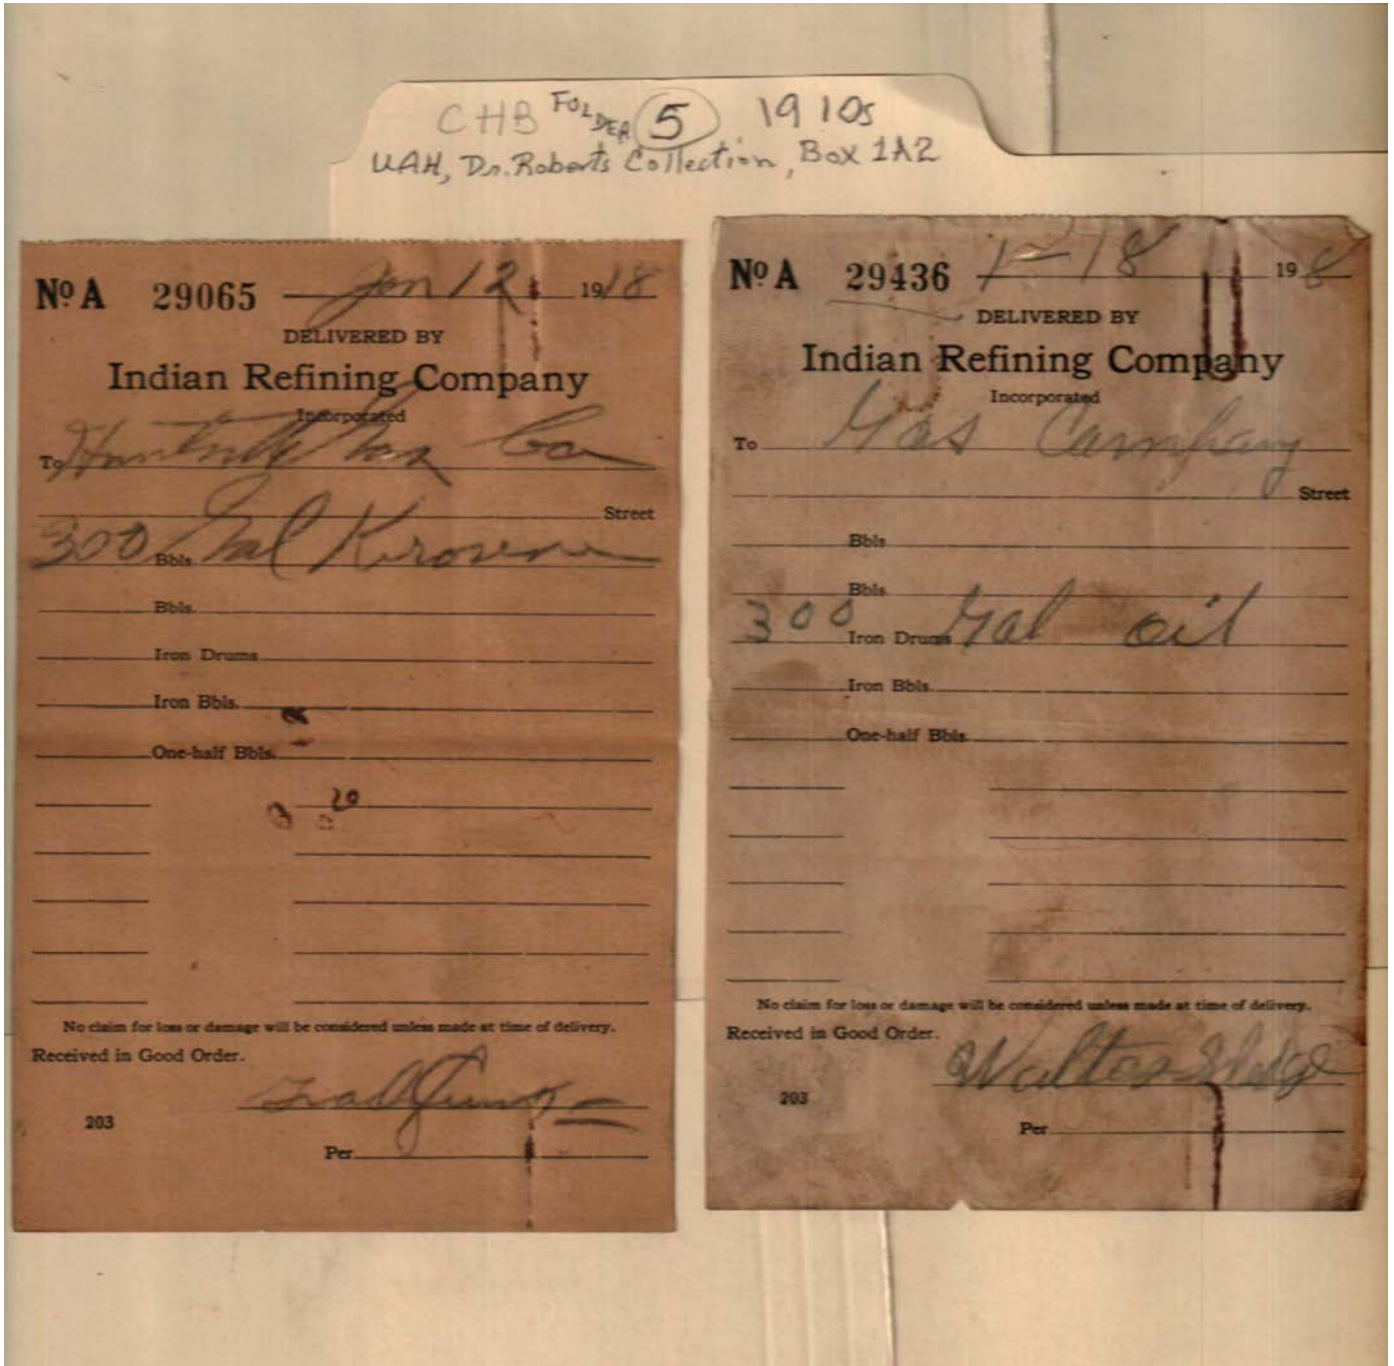 CHB FOLDER 5 1910s
UAH, Dr. Roberts Collection, Box 1A2
No A 29065 Jan 12 1918
DELIVERED BY
Indian Refining Company
Incorporated
To Huntsville Gas Co
Street
300 Bbls. Gal Kerosene
Bbls.
Iron Drums
Iron Bbls.
One-half Bbls.
20
No claim for loss or damage will be considered unless made at time of delivery.
Received in Good Order.
203
Per
No A 29436 1-18 198
DELIVERED BY
Indian Refining Company
Incorporated
To Gas Company
Street
Bbls
Bbls
300 Iron Drums Gal oil
Iron Bbls.
One-half Bbls.
No claim for loss or damage will be considered unless made at time of delivery.
Received in Good Order.
Walter Sledge
203
Per